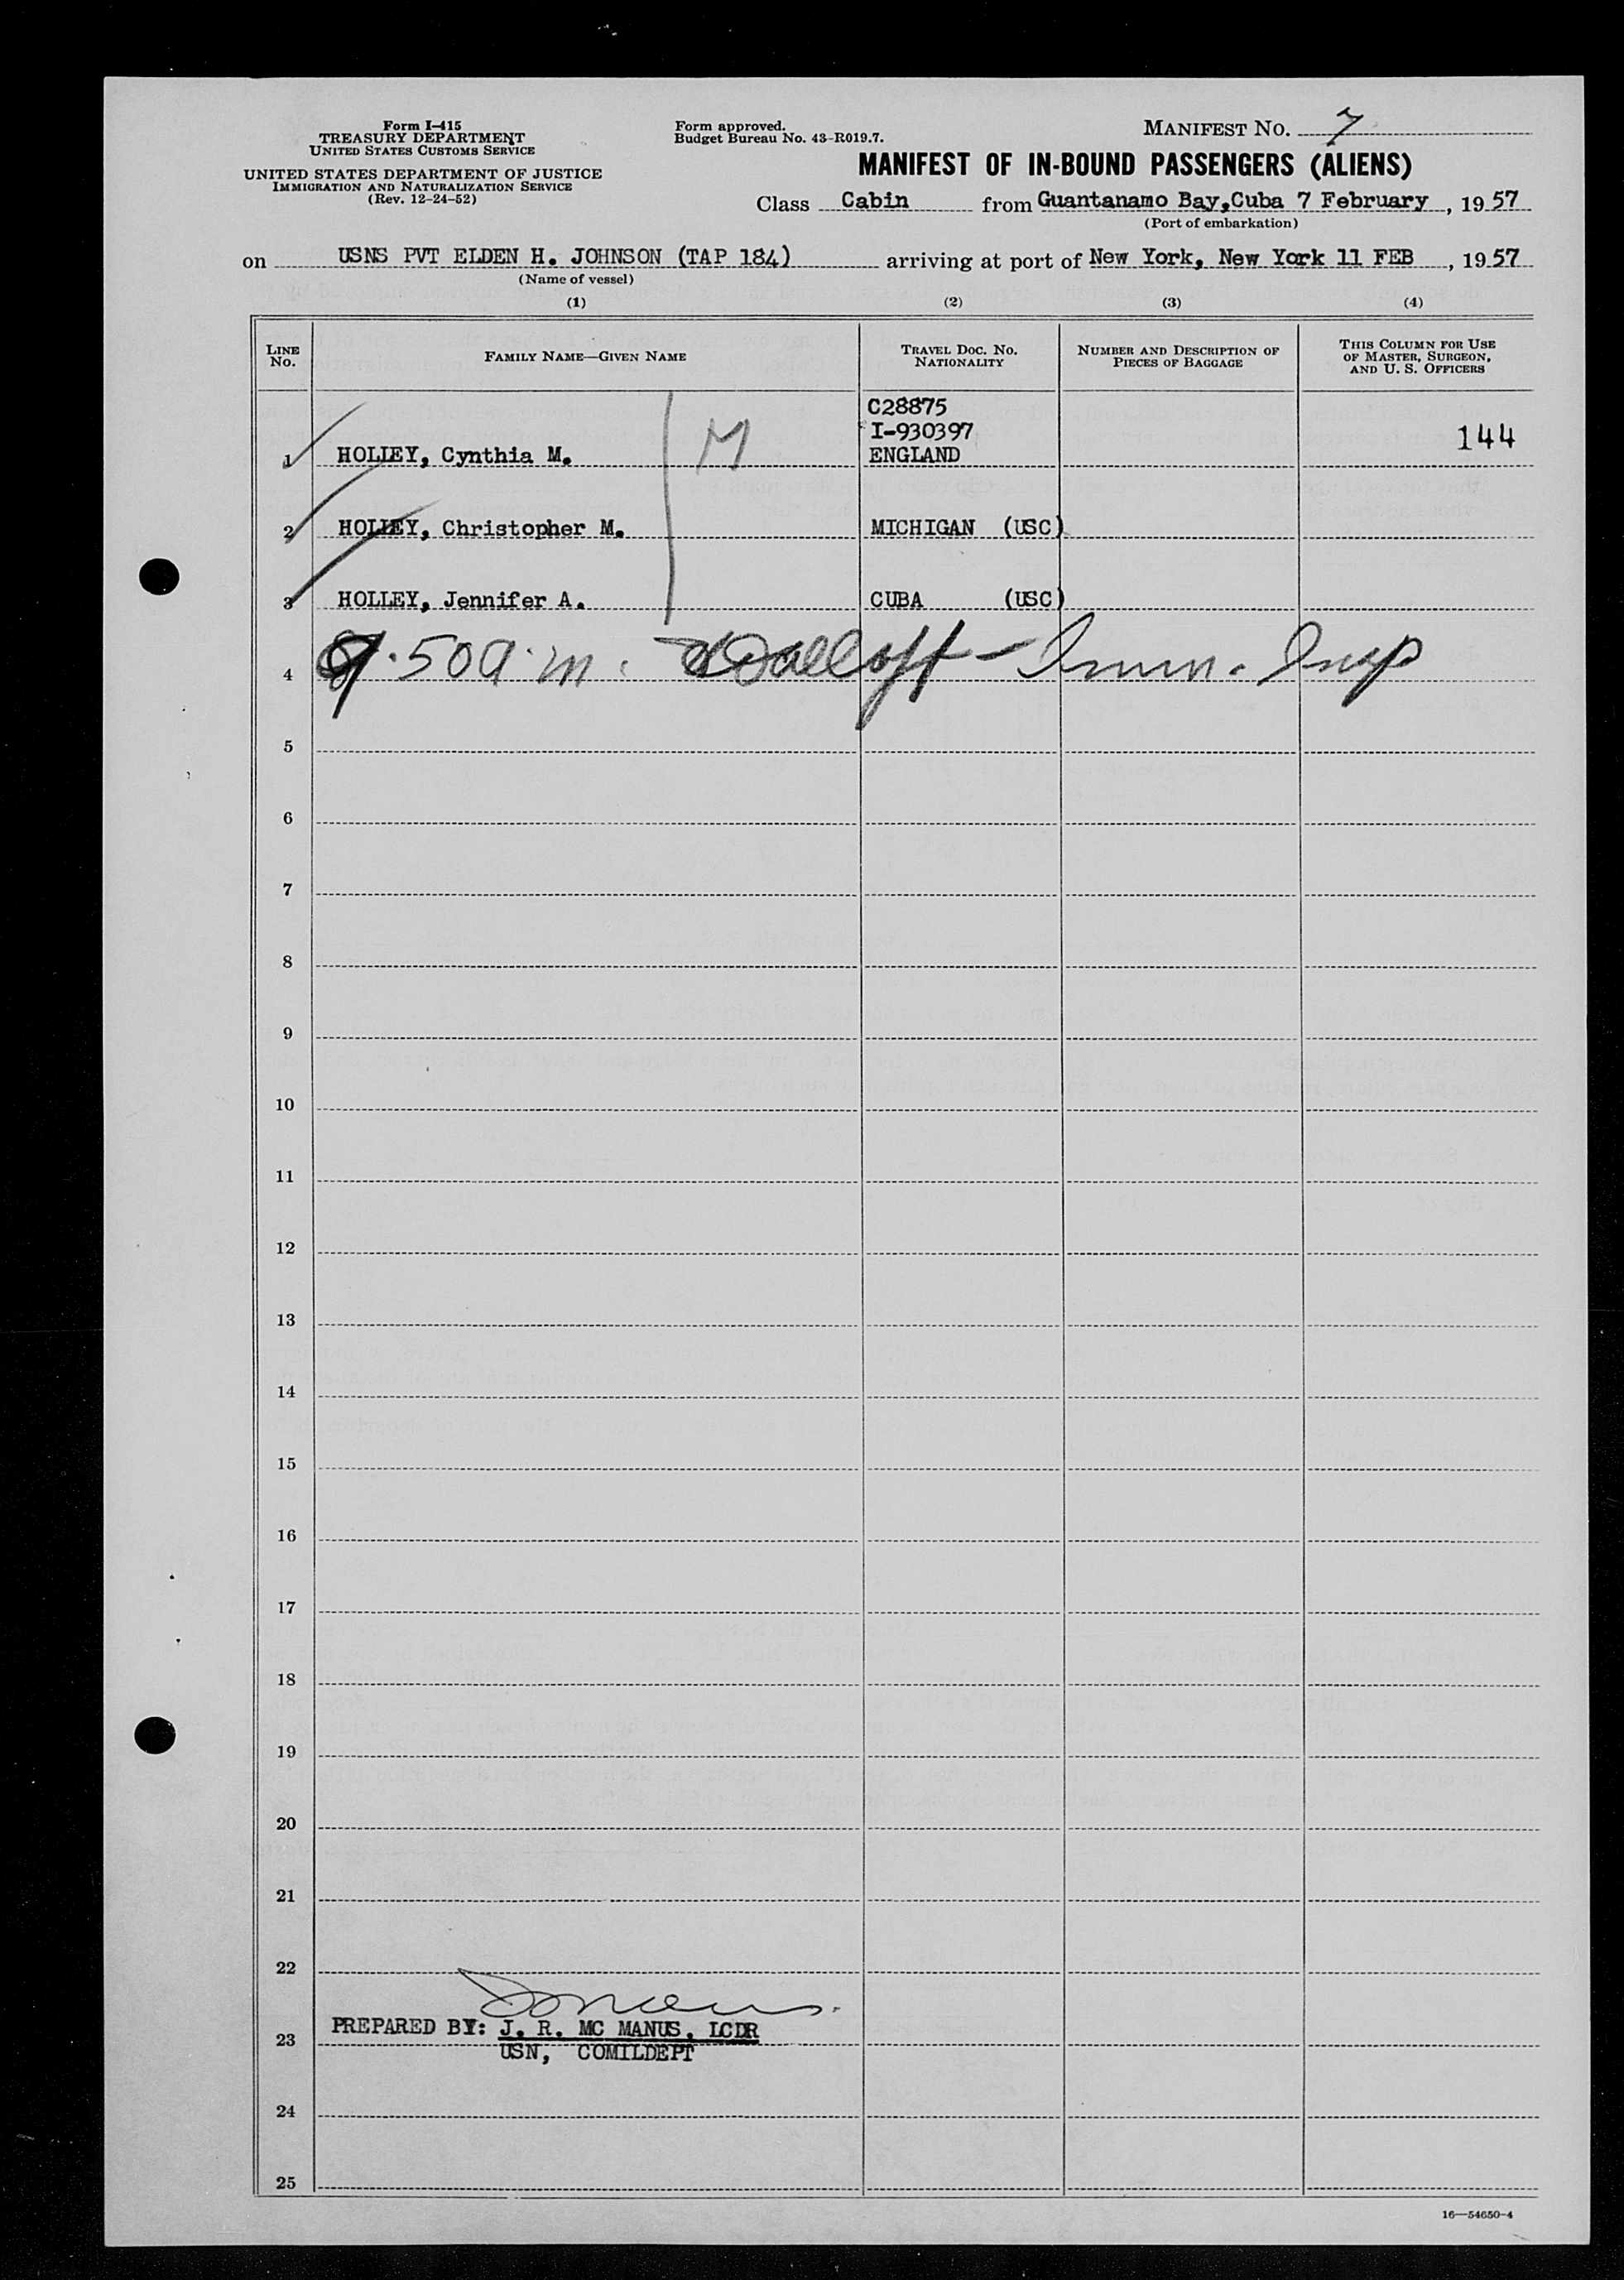 Form I-415
TREASURY DEPARTMENT
UNITED STATES CUSTOMS SERVICE
UNITED STATES DEPARTMENT OF JUSTICE
IMMIGRATION AND NATURALIZATION SERVICE
(Rev. 12-24-52)
Form approved.
Budget Bureau No. 43-R019.7.
MANIFEST NO. 7
MANIFEST OF IN-BOUND PASSENGERS (ALIENS)
Class Cabin from Guantanamo Bay,Cuba 7 February, 1957
(Port of embarkation)
on USNS PVT ELDEN H. JOHNSON (TAP 184) arriving at port of New York, New York 11 FEB, 1957
(Name of vessel)
(1) (2) (3) (4)
LINE NO. FAMILY NAME—GIVEN NAME TRAVEL DOC. NO. NATIONALITY NUMBER AND DESCRIPTION OF PIECES OF BAGGAGE THIS COLUMN FOR USE OF MASTER, SURGEON, AND U. S. OFFICERS
C28875
I-930397
1 HOLLEY, Cynthia M. M ENGLAND 144
2 HOLLEY, Christopher M. MICHIGAN (USC)
3 HOLLEY, Jennifer A. CUBA (USC)
4 9.50 a.m. Immn. Insp
5
6
7
8
9
10
11
12
13
14
15
16
17
18
19
20
21
22
23 PREPARED BY: J. R. MC MANUS, LCDR
USN, COMILDEPT
24
25
16—54650-4